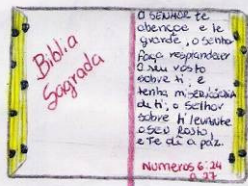 Biblia
Sagrada
O SENHOR te
abençoe e te
guarde, o senho
Faça resprandecer
O seu rosto
sobre ti, e
tenha misericórdia
de ti; o Senhor
sobre ti levante
o seu Rosto
e te dê a paz.
Numeros 6:24
a 27